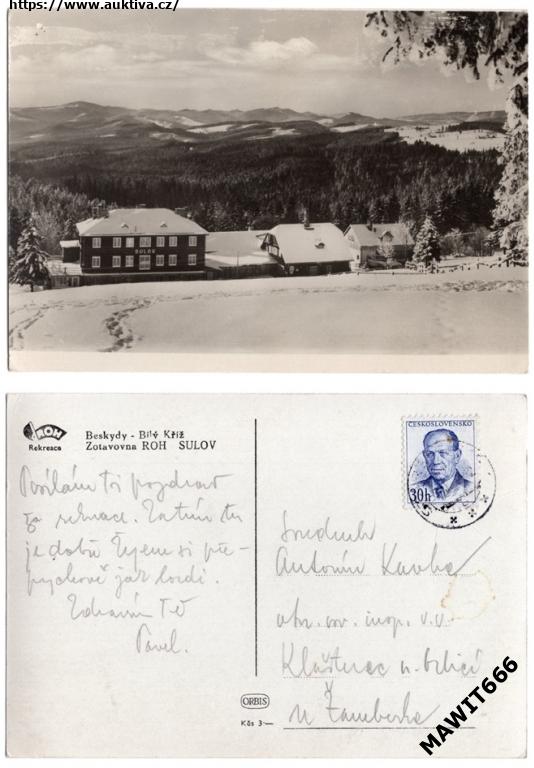 https://www.auktiva.cz/
SULOV
ROH
Rekreace
Beskydy - Bílý Kříž
Zotavovna ROH SULOV
ČESKOSLOVENSKO
30h
Posílám ti pozdrav
za rekreace. Zatím tu
je dobře. Žijem si pře-
pychově jak lordi.
Zdravím Tě
Pavel.
Soudruh
Antonín Kavka
insp. v.v.
Klášterec n. Orlicí
u Žamberka
ORBIS
Kčs 3·—
MAWIT666